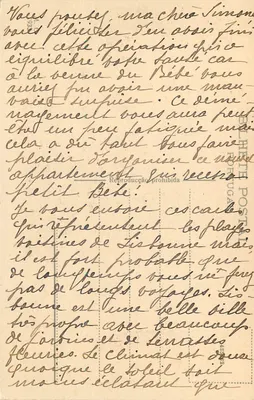 Vous pouvez, ma chère Simone
vous féliciter d'en avoir fini
avec cette opération qui a
équilibré votre santé car
à la venue du Bébé vous
auriez pu avoir une mau
vaise surprise. Ce démé-
nagement vous aura peut
être un peu fatiguée mais
cela a dû tant vous faire
plaisir d'organiser ce nouvel
appartement qui recevra
petit Bébé!
Je vous envoie ces cartes
qui représentent les plages
voisines de Lisbonne mais
il est fort probable que
de longtemps vous ne ferez
pas de longs voyages. Lis
bonne est une belle ville
très propre avec beaucoup
de jardins et de terrasses
fleuries. Le climat est doux
quoique le soleil soit
moins éclatant que
Reprodução proibida
BILHETE POSTAL